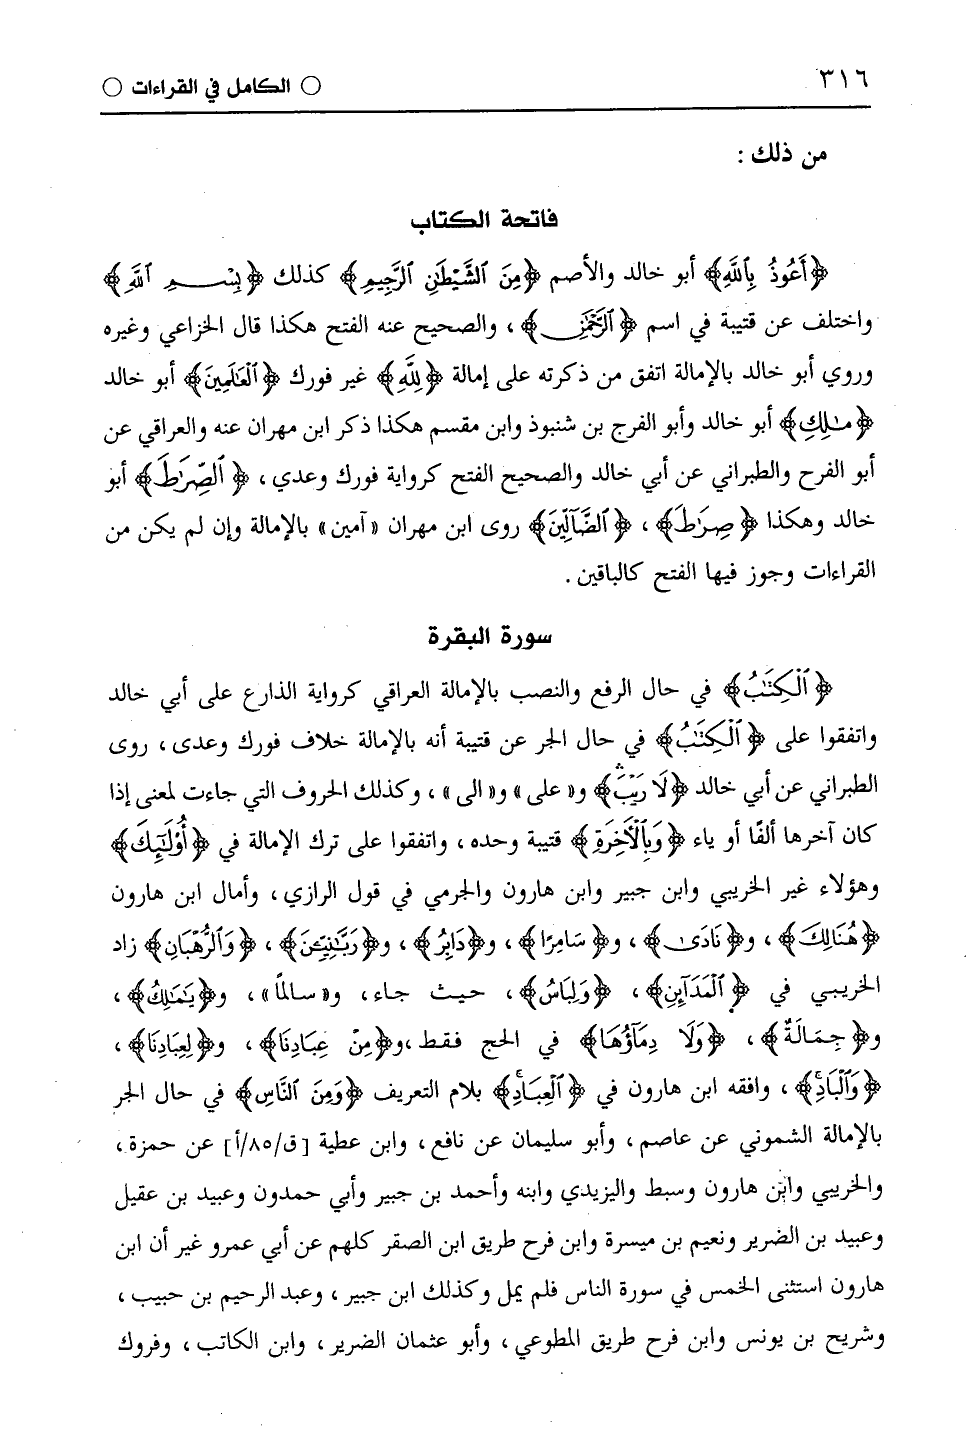 ٣١٦
○ الكامل في القراءات ○
من ذلك :
فاتحة الكتاب
﴿أَعُوذُ بِٱللَّهِ﴾ أبو خالد والأصم ﴿مِنَ ٱلشَّيْطَٰنِ ٱلرَّجِيمِ﴾ كذلك ﴿بِسْمِ ٱللَّهِ﴾
واختلف عن قتيبة في اسم ﴿ٱلرَّحْمَٰنِ﴾ ، والصحيح عنه الفتح هكذا قال الخزاعي وغيره
وروي أبو خالد بالإمالة اتفق من ذكرته على إمالة ﴿لِلَّهِ﴾ غير فورك ﴿ٱلْعَٰلَمِينَ﴾ أبو خالد
﴿مَٰلِكِ﴾ أبو خالد وأبو الفرج بن شنبوذ وابن مقسم هكذا ذكر ابن مهران عنه والعراقي عن
أبو الفرح والطبراني عن أبي خالد والصحيح الفتح كرواية فورك وعدي ، ﴿ٱلصِّرَٰطَ﴾ أبو
خالد وهكذا ﴿صِرَٰطَ﴾ ، ﴿ٱلضَّآلِّينَ﴾ روى ابن مهران «آمين» بالإمالة وإن لم يكن من
القراءات وجوز فيها الفتح كالباقين .
سورة البقرة
﴿ٱلْكِتَٰبُ﴾ في حال الرفع والنصب بالإمالة العراقي كرواية الذارع على أبي خالد
واتفقوا على ﴿ٱلْكِتَٰبُ﴾ في حال الجر عن قتيبة أنه بالإمالة خلاف فورك وعدى ، روى
الطبراني عن أبي خالد ﴿لَا رَيْبَ﴾ و« على» و« الى» ، وكذلك الحروف التي جاءت لمعنى إذا
كان آخرها ألفًا أو ياء ﴿وَبِٱلْأَخِرَةِ﴾ قتيبة وحده ، واتفقوا على ترك الإمالة في ﴿أُوْلَٰٓئِكَ﴾
وهؤلاء غير الخريبي وابن جبير وابن هارون والجرمي في قول الرازي ، وأمال ابن هارون
﴿هُنَالِكَ﴾ ، و﴿نَادَىٰ﴾ ، و﴿سَٰمِرًا﴾ ، و﴿دَابِرُ﴾ ، و﴿رَبَّٰنِيِّـۧنَ﴾ ، ﴿وَٱلرُّهْبَانِ﴾ زاد
الخريبي في ﴿ٱلْمَدَآئِنِ﴾ ، ﴿وَلِبَاسُ﴾ ، حيث جاء ، و« سالماً» ، و﴿يَٰمَٰلِكُ﴾ ،
و﴿جِمَٰلَةٌ﴾ ، ﴿وَلَا دِمَآؤُهَا﴾ في الحج فقط ،و﴿مِنْ عِبَادِنَا﴾ ، و﴿لِعِبَادِنَا﴾ ،
﴿وَٱلْبَادِ﴾ ، وافقه ابن هارون في ﴿ٱلْعِبَادِ﴾ بلام التعريف ﴿وَمِنَ ٱلنَّاسِ﴾ في حال الجر
بالإمالة الشموني عن عاصم ، وأبو سليمان عن نافع ، وابن عطية [ ق/٨٥/أ ] عن حمزة ،
والخريبي وابن هارون وسبط واليزيدي وابنه وأحمد بن جبير وأبي حمدون وعبيد بن عقيل
وعبيد بن الضرير ونعيم بن ميسرة وابن فرح طريق ابن الصقر كلهم عن أبي عمرو غير أن ابن
هارون استثنى الخمس في سورة الناس فلم يمل وكذلك ابن جبير ، وعبد الرحيم بن حبيب ،
وشريح بن يونس وابن فرح طريق المطوعي ، وأبو عثمان الضرير ، وابن الكاتب ، وفروك